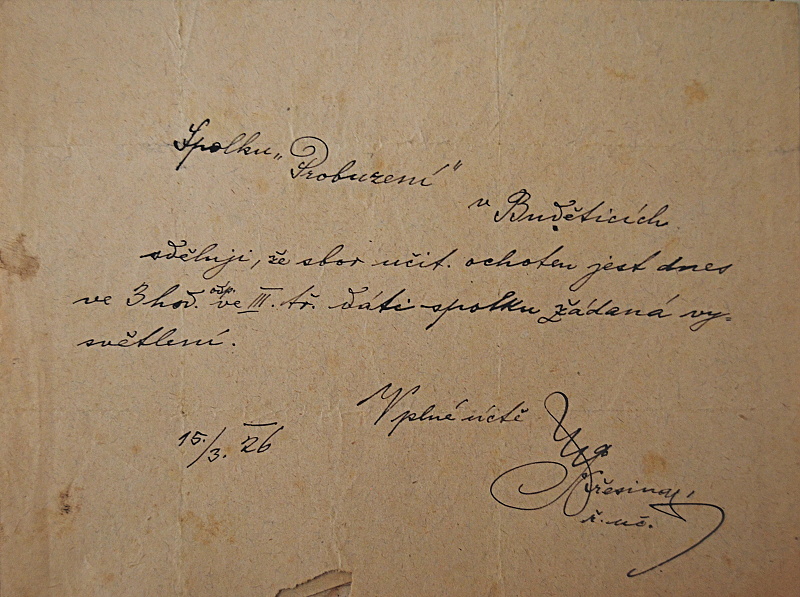 Spolku „Probuzení“
v Buděticích
sděluji, že sbor učit. ochoten jest dnes
ve 3 hod. odp. ve III. tř. dáti spolku žádaná vy=
světlení.
V plné úctě
15./3. 26
řesina,
ř. uč.